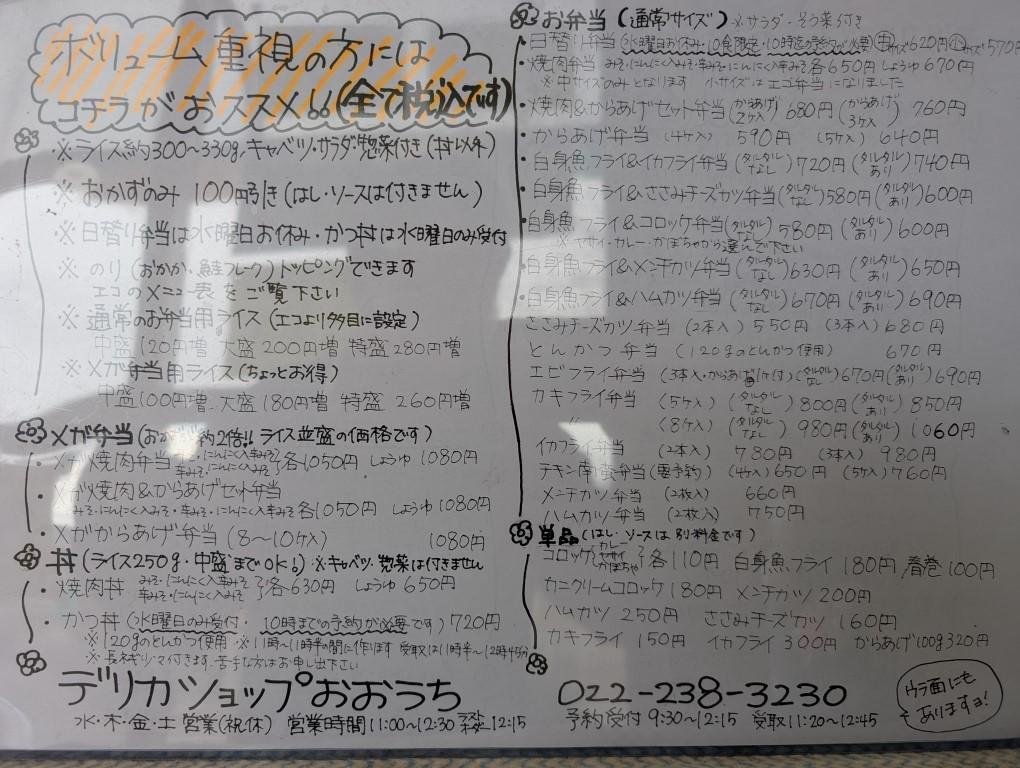 ボリューム重視の方には
コチラがおススメ!!(全て税込です)
※ライス約300〜330g、キャベツ・サラダ惣菜付き(丼以外)
※おかずのみ 100円引き(はし・ソースは付きません)
※日替り弁当は水曜日お休み・かつ丼は水曜日のみ受付
※のり(おかか・鮭フレーク)トッピングできます
エコのメニュー表をご覧下さい
※通常のお弁当用ライス(エコより多目に設定)
中盛120円増 大盛200円増 特盛280円増
※メガ弁当用ライス(ちょっとお得)
中盛100円増 大盛180円増 特盛260円増
メガ弁当(おかず約2倍!! ライス並盛の価格です)
・メガ焼肉弁当 みそ・にんにく入みそ 辛みそ・にんにく入辛みそ 各1050円 しょうゆ1080円
・メガ焼肉&からあげセット弁当
みそ・にんにく入みそ・辛みそ・にんにく入辛みそ各1050円 しょうゆ1080円
・メガからあげ弁当(8〜10ケ入) 1080円
丼(ライス250g・中盛までOK!) ※キャベツ・惣菜は付きません
・焼肉丼 みそ・にんにく入みそ 辛みそ・にんにく入辛みそ 各630円 しょうゆ650円
・かつ丼(水曜日のみ受付・10時までの予約が必要です)720円
※120gのとんかつ使用 ※11時〜11時半の間に作ります 受取は11時半〜12時45分
※長ネギ・ノリ付きます。苦手な方はお申し出下さい
デリカショップおおうち
水・木・金・土 営業(祝休) 営業時間11:00〜12:30 12:15
お弁当(通常サイズ)※サラダ・そう菜付き
・日替り弁当(水曜日お休み・10食限定・10時迄の予約で必要)(中)サイズ620円(小)サイズ570円
・焼肉弁当 みそ・にんにく入みそ・辛みそ・にんにく入辛みそ各650円 しょうゆ670円
※中サイズのみとなります 小サイズはエコ弁当になりました
・焼肉&からあげセット弁当(からあげ2ケ入)680円(からあげ3ケ入)760円
・からあげ弁当(4ケ入)590円(5ケ入)640円
・白身魚フライ&イカフライ弁当(タルタルなし)720円(タルタルあり)740円
・白身魚フライ&ささみチーズカツ弁当(タルタルなし)580円(タルタルあり)600円
・白身魚フライ&コロッケ弁当(タルタルなし)580円(タルタルあり)600円
※ヤサイ・カレー・かぼちゃから選んで下さい
・白身魚フライ&メンチカツ弁当(タルタルなし)630円(タルタルあり)650円
・白身魚フライ&ハムカツ弁当(タルタルなし)670円(タルタルあり)690円
・ささみチーズカツ弁当(2本入)550円(3本入)680円
とんかつ弁当(120gのとんかつ使用)670円
エビフライ弁当(3本入・からあげ1ケ付)(タルタルなし)670円(タルタルあり)690円
カキフライ弁当(5ケ入)(タルタルなし)800円(タルタルあり)850円
〃 (8ケ入)(タルタルなし)980円(タルタルあり)1060円
イカフライ弁当(2本入)780円(3本入)980円
チキン南蛮弁当(要予約)(4ケ入)650円(5ケ入)760円
メンチカツ弁当(2枚入)660円
ハムカツ弁当(2枚入)750円
単品(はし・ソースは別料金です)
コロッケ カレー ヤサイ かぼちゃ 各110円 白身魚フライ180円 春巻100円
カニクリームコロッケ180円 メンチカツ200円
ハムカツ250円 ささみチーズカツ160円
カキフライ150円 イカフライ300円 からあげ100g320円
022-238-3230
予約受付9:30〜12:15 受取11:20〜12:45
ウラ面にもありますョ!